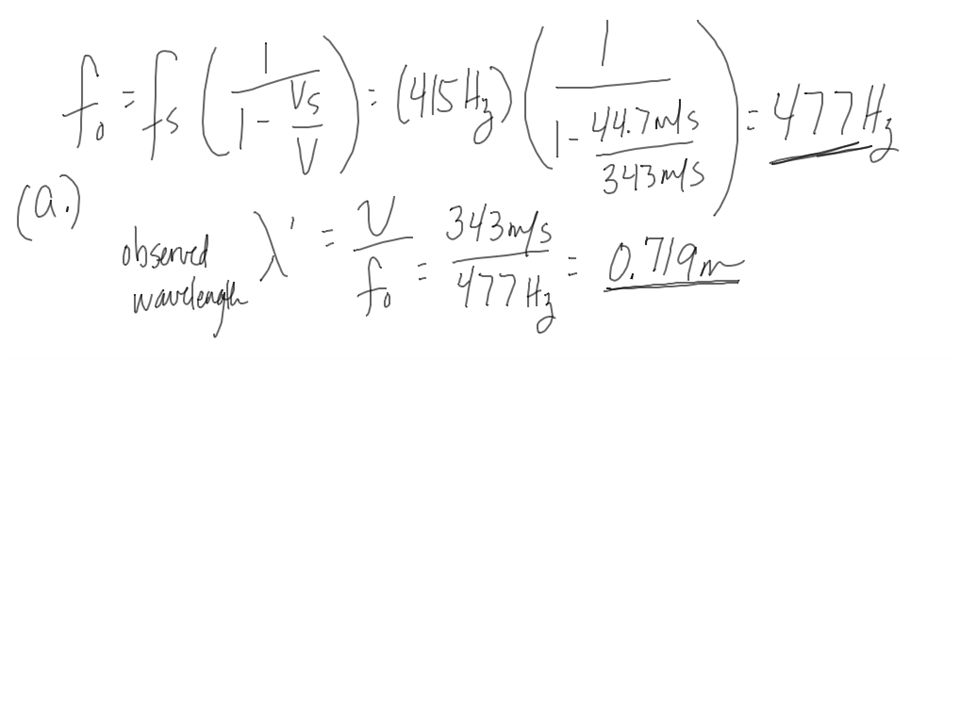 f₀ = fs (1 / (1 - Vs/V)) = (415 Hz) (1 / (1 - 44.7 m/s / 343 m/s)) = 477 Hz
(a.)
observed wavelength λ' = V / f₀ = 343 m/s / 477 Hz = 0.719 m